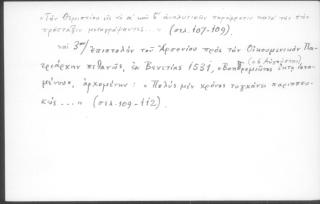 «Τῶν Θεμιστίου εἰς τὸ α΄ καὶ β΄ ἀναλυτικῶν παράφρασιν κατὰ τὰς τὴν
πρόσταξιν μεταγράψαντες...» (σελ. 107-109).
καὶ 3ον/ ἐπιστολὴν τοῦ Ἀρσενίου πρὸς τὸν Οἰκουμενικὸν Πα-
τριάρχην πιθανῶς, ἐκ Βενετίας 1531, «Βοηδρομιῶνος ἕκτῃ ἱστα-
(= 6 Αὐγούστου)
μένου», ἀρχομένην: «Πολὺς μὲν χρόνος τυγχάνει παριππευ-
κώς....» (σελ. 109-112).